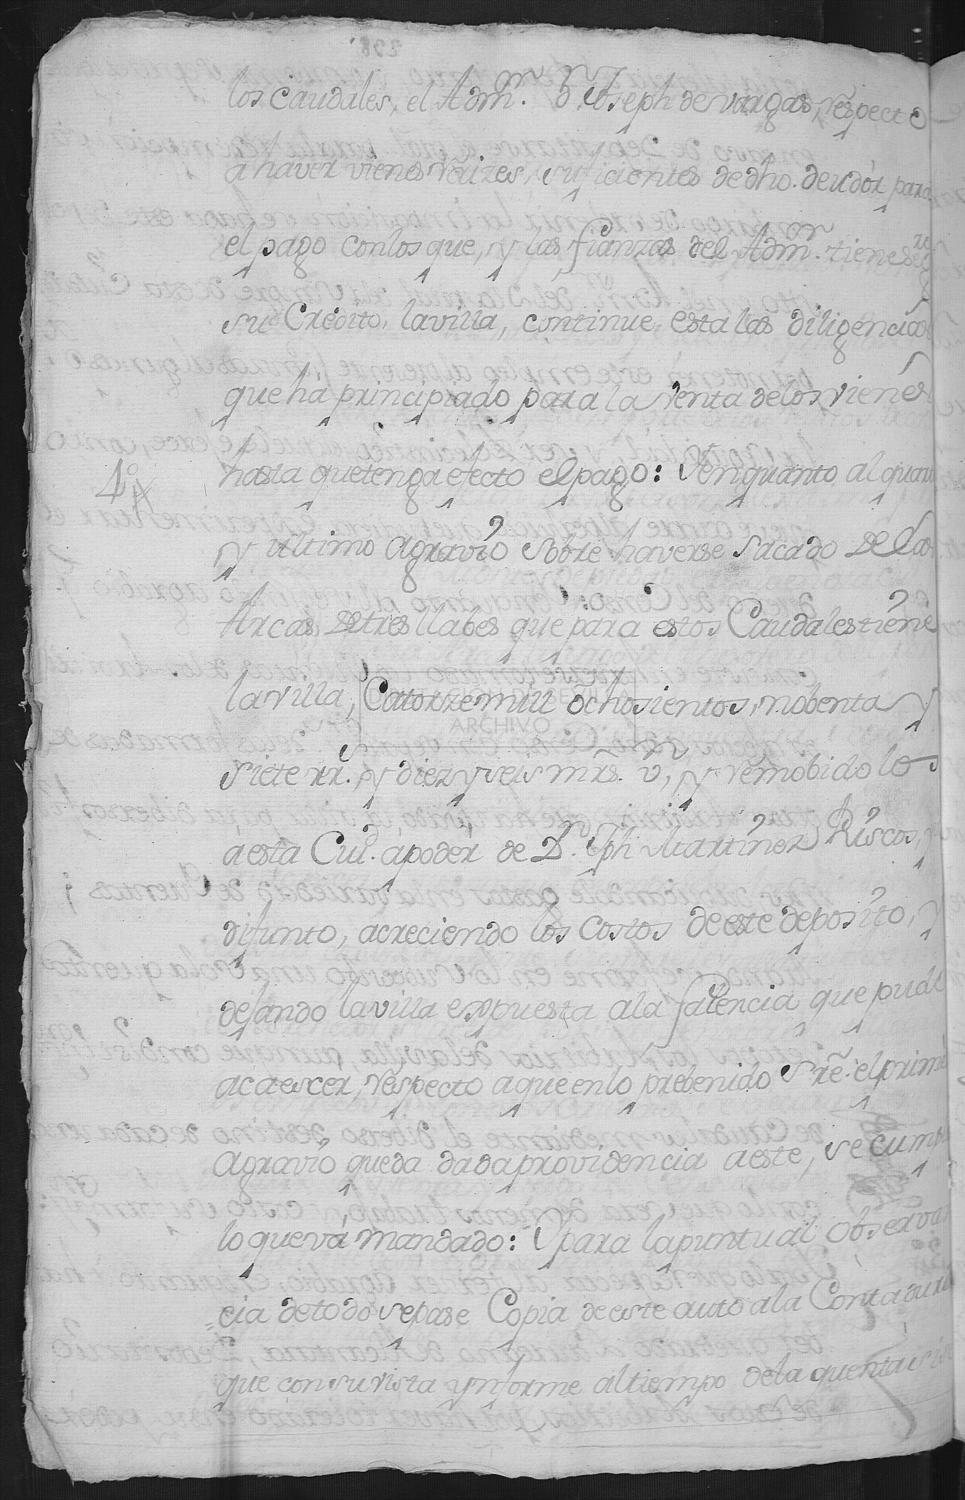 los Caudales, el Adm.ᵒʳ Dⁿ Joseph de Vargas, respecto
a haver vienes raizes, suficientes de dho. deudor para
el pago con los que, y las fianzas del Adm.ᵒʳ tiene
su Credito, la villa, continue esta las diligencias
que há principiado para la venta de los vienes
hasta que tenga efecto el pago: Y en quanto al quarto
4º
y ultimo agravio sobre haverse sacado de las
Arcas, de tres llabes que para estos Caudales tiene
la villa, Catorze mill ochosientos, nobenta y
ARCHIVO
siete rr.ˢ y diez y seis mrs. v, y remobidolos
a esta Ciu.ᵈ a poder de Dⁿ Jph Martinez Riscos,
difunto, acreciendo los costos de este deposito, y
dejando la villa expuesta a la falencia que pude
acaescer, respecto a que en lo prebenido sʳᵉ. el prime
Agravio queda dada providencia a este, se cumpla
lo que vá mandado: Y para la puntual observan
cia de todo se pase Copia de este auto a la Contaduria
que con su vista ynforme al tiempo de la quenta